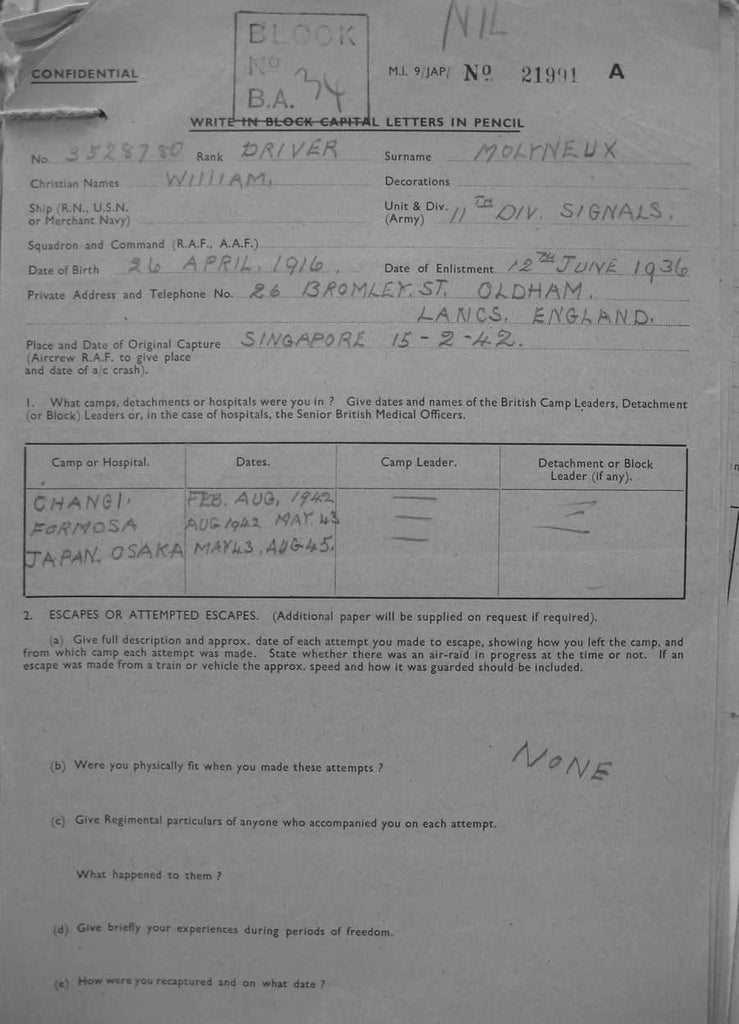 NIL
BLOCK
No
B.A. 34
CONFIDENTIAL
M.I. 9/JAP/ No 21991 A
WRITE IN BLOCK CAPITAL LETTERS IN PENCIL
No. 3528780 Rank DRIVER Surname MOLYNEUX
Christian Names WILLIAM. Decorations
Ship (R.N., U.S.N. or Merchant Navy) Unit & Div. (Army) 11TH DIV. SIGNALS.
Squadron and Command (R.A.F., A.A.F.)
Date of Birth 26 APRIL. 1916. Date of Enlistment 12TH JUNE 1936
Private Address and Telephone No. 26 BROMLEY. ST. OLDHAM,
LANCS. ENGLAND.
Place and Date of Original Capture SINGAPORE 15-2-42.
(Aircrew R.A.F. to give place
and date of a/c crash).
1. What camps, detachments or hospitals were you in ? Give dates and names of the British Camp Leaders, Detachment
(or Block) Leaders or, in the case of hospitals, the Senior British Medical Officers.
Camp or Hospital. Dates. Camp Leader. Detachment or Block Leader (if any).
CHANGI, FEB. AUG, 1942 — —
FORMOSA AUG 1942 MAY 43 — —
JAPAN. OSAKA MAY 43, AUG 45. —
2. ESCAPES OR ATTEMPTED ESCAPES. (Additional paper will be supplied on request if required).
(a) Give full description and approx. date of each attempt you made to escape, showing how you left the camp, and
from which camp each attempt was made. State whether there was an air-raid in progress at the time or not. If an
escape was made from a train or vehicle the approx. speed and how it was guarded should be included.
NONE
(b) Were you physically fit when you made these attempts ?
(c) Give Regimental particulars of anyone who accompanied you on each attempt.
What happened to them ?
(d) Give briefly your experiences during periods of freedom.
(e) How were you recaptured and on what date ?